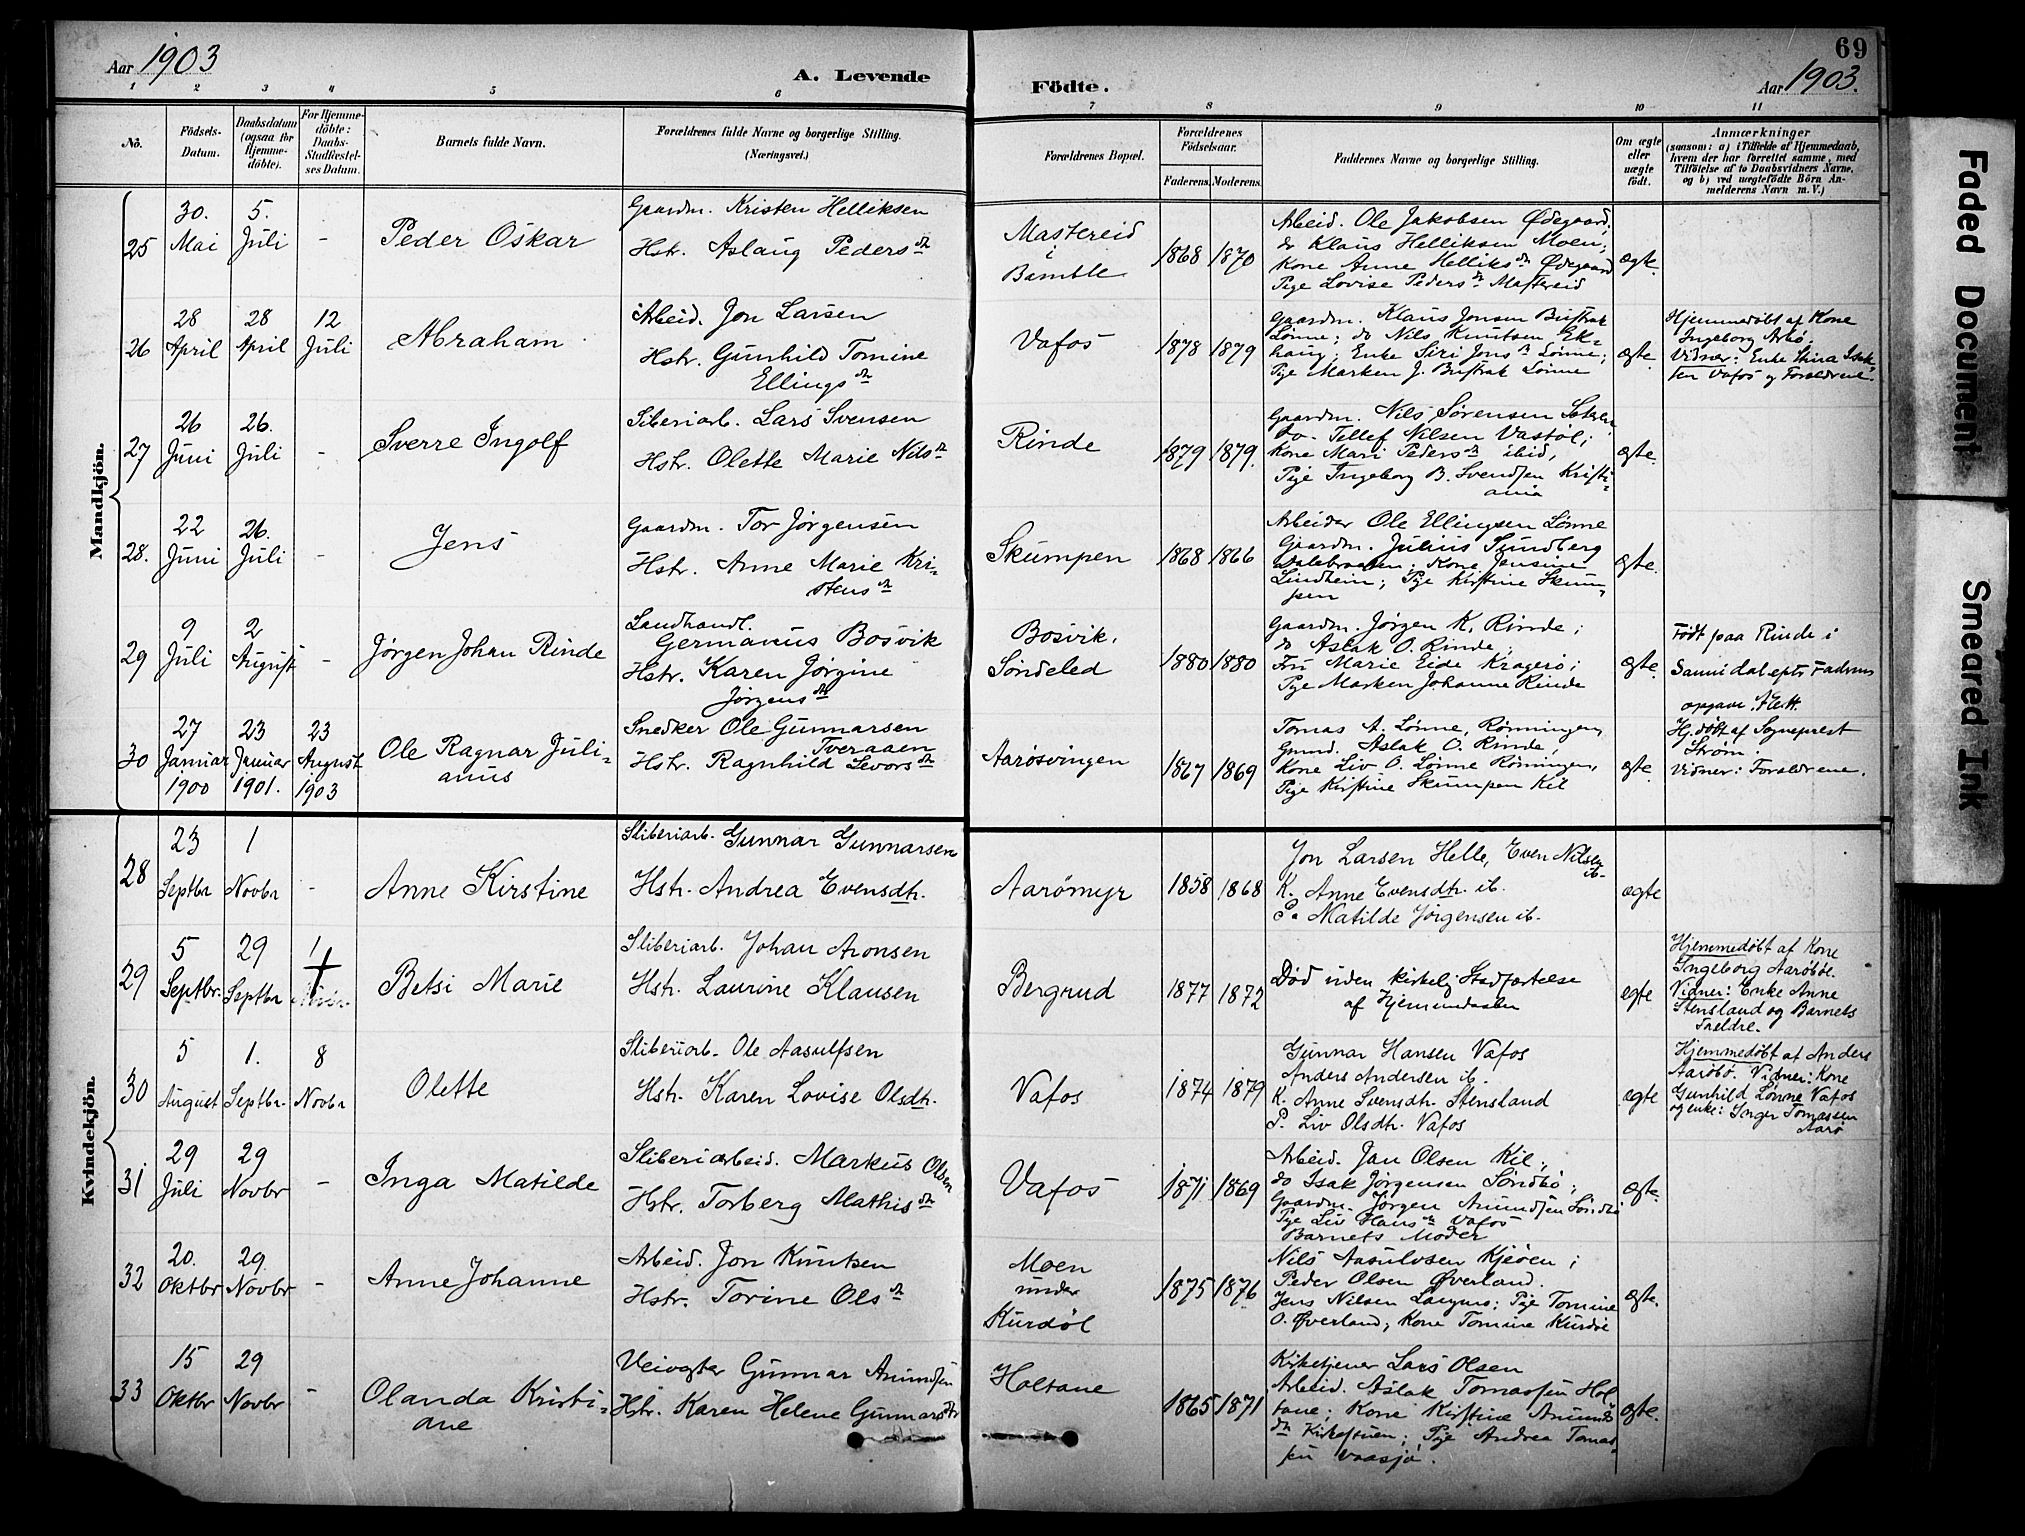 Aar 1903
A. Levende
Födte.
69
Aar 1903.
1 2 3 4 5 6 7 8 9 10 11
No.
Födsels-
Datum.
Daabsdatum
(ogsaa for
Hjemme-
döbte).
For Hjemme-
döbte:
Daabs-
Stadfæstel-
ses Datum.
Barnets fulde Navn.
Forældrenes fulde Navne og borgerlige Stilling.
(Næringsvei.)
Forældrenes Bopæl.
Forældrenes
Födselsaar.
Faderens. Moderens.
Faddernes Navne og borgerlige Stilling.
Om ægte
eller
uægte
födt.
Anmærkninger
(saasom: a) i Tilfælde af Hjemmedaab,
hvem der har forrettet samme, med
Tilföielse af to Daabsvidners Navne,
og b) ved uægtefödte Börn An-
melderens Navn m. V.)
Mandkjön.
25
30.
Mai
5.
Juli
-
Peder Oskar
Gaardm. Kristen Helliksen
Hstr. Aslaug Pedersdtr
Mastereid
i
Bamble
1868 1870
Arbeid. Ole Jakobsen Ødegaard,
do Klaus Helliksen Moen;
Kone Anne Helliksdtr Ødegaard
Pige Lovise Pedersdtr Mastereid
ægte.
26
28
April
28
April
12
Juli
Abraham
Arbeid. Jon Larsen
Hstr. Gunhild Tomine
Ellingsdtr
Vafos
1878 1879
Gaardm. Klaus Jonsen Bustrak
Lønne; do Nils Knutsen Ek-
haug; Enke Siri Jonsdtr Lønne;
Pige Marken J. Bustrak Lønne
ægte.
Hjemmedøbt af Kone
Ingeborg Arbø.
Vidner: Enke Stina Isak-
sen Vafos og Forældrene.
27
26
Juni
26.
Juli
-
Sverre Ingolf
Sliberiarb. Lars Svensen
Hstr. Olette Marie Nilsdtr
Rinde
1879 1879.
Gaardm. Nils Sørensen
do. Tellef Nilsen Vastøl;
Kone Mari Pedersdtr ibid,
Pige Ingeborg B. Svendsen Kristi-
ania
ægte.
28.
22
Juni
26.
Juli
-
Jens
Gaardm. Tor Jørgensen
Hstr. Anne Marie Kri-
stensdtr
Skumpen
1868 1866
Arbeider Ole Ellingsen Lønne
Gaardm. Julius Sundberg
Dalebraaten; Kone Jensine
Lindheim; Pige Kirstine Skum-
pen
ægte.
29
9
Juli
2
August
-
Jørgen Johan Rinde
Landhandl.
Germanus Bosvik
Hstr. Karen Jørgine
Jørgensdtr
Bosvik,
Søndeled
1880 1880
Gaardm. Jørgen K. Rinde;
do Aslak O. Rinde;
Fru Marie Eide Kragerø;
Pige Marken Johanne Rinde
ægte.
Født paa Rinde i
Sannidal efter Faderens
opgave.
30
27
Januar
1900
23
Januar
1901.
23
August
1903
Ole Ragnar Juli-
anus
Snedker Ole Gunnarsen
Tveraaen
Hstr. Ragnhild Sevorsdtr
Aarøsvingen
1867 1869
Tomas A. Lønne, Rønningen,
Gmd. Aslak O. Rinde;
Kone Liv O. Lønne Rønningen,
Pige Kirstine Skumpen Kil
ægte.
Hj.døbt af Sogneprest
Strøm.
Vidner: Forældrene.
Kvindekjön.
28
23
Septbr
1
Novbr
-
Anne Kirstine
Sliberiarb. Gunnar Gunnarsen
Hstr. Andrea Evensdtr.
Aarømyr
1858 1868
Jon Larsen Helle, Even Nilsen
ib.
K. Anne Evensdtr. ib.
P. Matilde Jørgensen ib.
ægte
29
5
Septbr.
29
Septbr
1
Novbr
Betsi Marie
Sliberiarb. Johan Aronsen
Hstr. Laurine Klausen
Bergrud
1877 1872
Død uden kirkelig Stadfæstelse
af Hjemmedaaben
ægte
Hjemmedøbt af Kone
Ingeborg Aarøbøe.
Vidner: Enke Anne
Stensland og Barnets
Fældre.
30
5
August
1.
Septbr.
8
Novbr
Olette
Sliberiarb. Ole Aasulfsen
Hstr. Karen Lovise Olsdtr.
Vafos
1874 1879
Gunnar Hansen Vafos
Anders Andersen ib.
K. Anne Svensdtr. Stensland
P. Liv Olsdtr. Vafos
ægte
Hjemmedøbt af Anders
Aarøbø. Vidner: Kone
Gunhild Lønne Vafos
og enke: Inger Tomassen
Aarø
31
29
Juli
29
Novbr
-
Inga Matilde
Sliberiarbeid. Markus Olsen
Hstr. Torberg Mathisdtr
Vafos
1871 1869
Arbeid. Jan Olsen Kil;
do Isak Jørgensen Søndbø;
Gaardm. Jørgen Amundsen Søndbø
Pige Liv Hansdtr Vafos
Barnets Moder
ægte.
32
20.
Oktbr
29.
Novbr
-
Anne Johanne
Arbeid. Jon Knutsen
Hstr. Torine Olsdtr
Moen
under
Kurdøl
1875 1876
Nils Aasulvsen Kjøen;
Peder Olsen Øverland.
Jens Nilsen; Pige Tomine
O. Øverland; Kone Tomine Kurdøl
ægte.
33
15
Oktbr
29
Novbr
-
Olanda Kristi-
ane
Veivogter Gunnar Amundsen
Hstr. Karen Helene Gunnarsdtr
Holtane
1865 1871
Kirketjener Lars Olsen
Arbeid. Aslak Tomassen Hol-
tane; Kone Kirstine Amunds-
dtr Kirkestuen; Pige Andrea Tomas-
sen Vaasjø.
ægte.
Faded Document
Smeared Ink